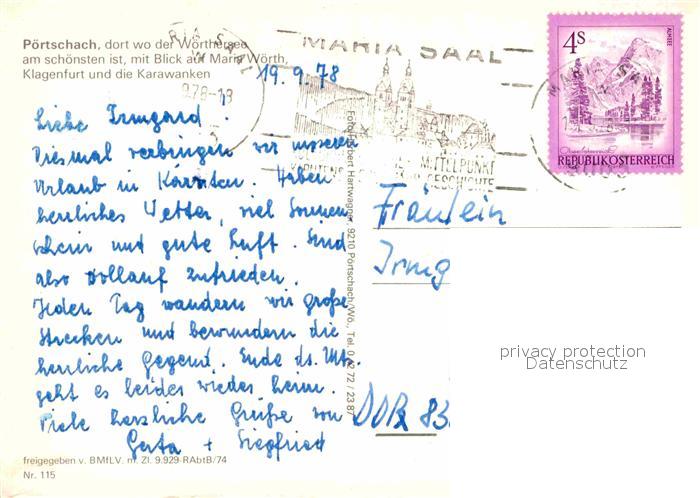 Pörtschach, dort wo der Wörthersee
am schönsten ist, mit Blick auf Maria Wörth,
Klagenfurt und die Karawanken
19.9.78
MARIA SAAL
MITTELPUNKT
KÄRNTENS GESCHICHTE
4S
ALMSEE
Oberösterreich
REPUBLIK ÖSTERREICH
Liebe Irmgard.
Diesmal verbringen wir unseren
Urlaub in Kärnten. Haben
herrliches Wetter, viel Sonnen
schein und gute Luft. Sind
also vollauf zufrieden.
Jeden Tag wandern wir große
Strecken und bewundern die
herrliche Gegend. Ende ds. Mts.
geht es leider wieder heim.
Viele herzliche Grüße von
Gerta + Siegfried
Foto Herbert Hartwagner, 9210 Pörtschach/Wö., Tel. 0 42 72 / 23 87
Fräulein
Irmg
DDR 83
privacy protection
Datenschutz
freigegeben v. BMfLV. m. Zl. 9.929-RAbtB/74
Nr. 115